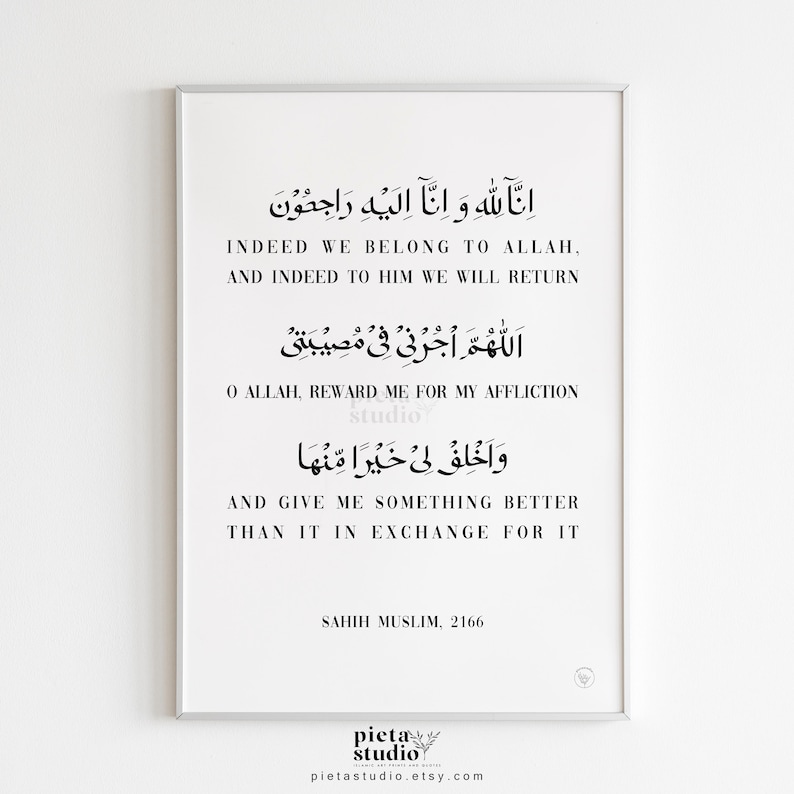 اِنَّآ لِلّٰهِ وَ اِنَّآ اِلَيْهِ رَاجِعُوْنَ
INDEED WE BELONG TO ALLAH,
AND INDEED TO HIM WE WILL RETURN
اَللّٰهُمَّ اْجُرْنِيْ فِيْ مُصِيْبَتِيْ
O ALLAH, REWARD ME FOR MY AFFLICTION
pieta
studio
وَاَخْلِفْ لِيْ خَيْرًا مِّنْهَا
AND GIVE ME SOMETHING BETTER
THAN IT IN EXCHANGE FOR IT
SAHIH MUSLIM, 2166
pieta
studio
ISLAMIC ART PRINTS AND QUOTES
pietastudio.etsy.com